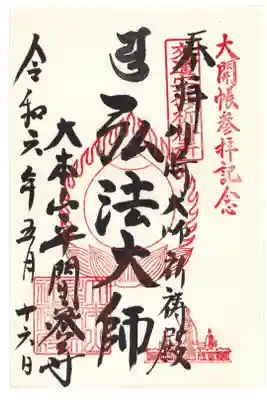 大開帳参拝記念
奉拝 川崎大師祈祷殿
弘法大師
大本山平間寺
令和六年五月十六日